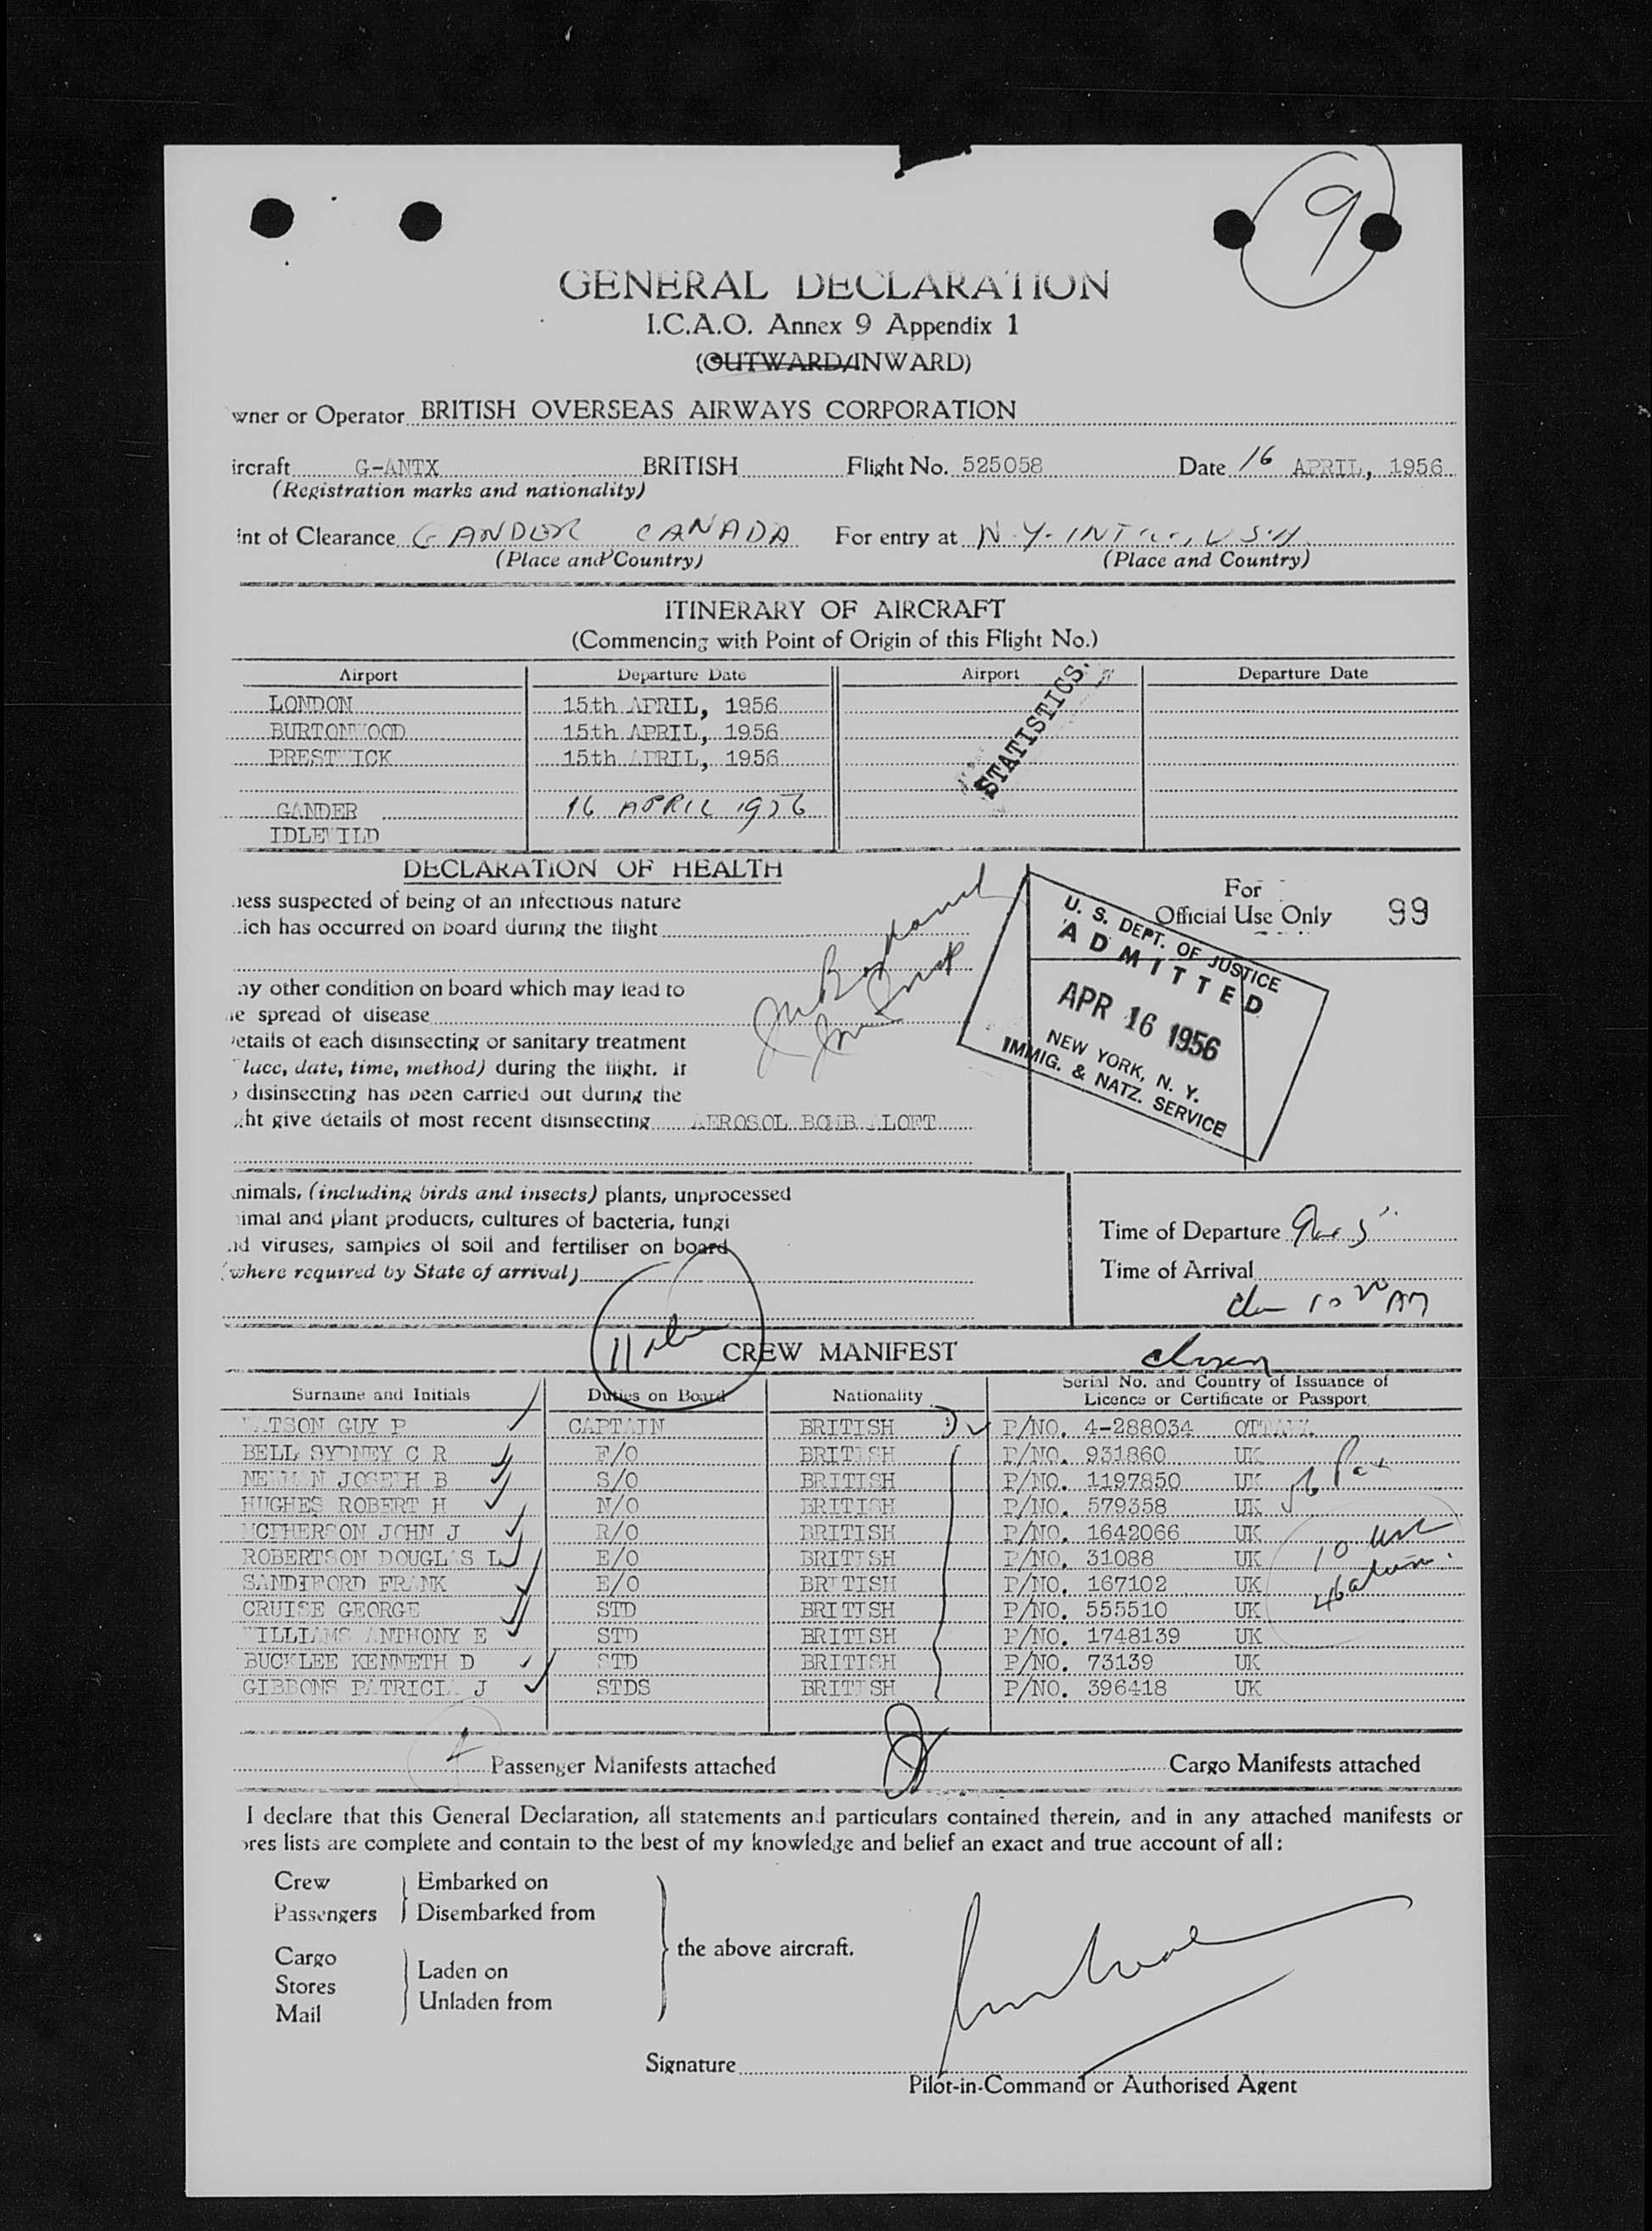 9
GENERAL DECLARATION
I.C.A.O. Annex 9 Appendix 1
(OUTWARD/INWARD)
wner or Operator BRITISH OVERSEAS AIRWAYS CORPORATION
ircraft G-ANTX BRITISH Flight No. 525058 Date 16 APRIL, 1956
(Registration marks and nationality)
int of Clearance GANDER CANADA For entry at N.Y. INT'L, USA
(Place and Country) (Place and Country)
ITINERARY OF AIRCRAFT
(Commencing with Point of Origin of this Flight No.)
Airport Departure Date Airport Departure Date
LONDON 15th APRIL, 1956
BURTONWOOD 15th APRIL, 1956
PRESTWICK 15th APRIL, 1956
STATISTICS.
GANDER 16 APRIL 1956
IDLEWILD
DECLARATION OF HEALTH
ness suspected of being of an infectious nature
ich has occurred on board during the flight
For
Official Use Only 99
ny other condition on board which may lead to
e spread of disease
etails of each disinsecting or sanitary treatment
lace, date, time, method) during the flight. If
disinsecting has been carried out during the
ght give details of most recent disinsecting AEROSOL BOMB ALOFT
U. S. DEPT. OF JUSTICE
ADMITTED
APR 16 1956
NEW YORK, N. Y.
IMMIG. & NATZ. SERVICE
nimals, (including birds and insects) plants, unprocessed
imal and plant products, cultures of bacteria, fungi
nd viruses, samples of soil and fertiliser on board
(where required by State of arrival)
Time of Departure
Time of Arrival
10 20 AM
11
CREW MANIFEST
Surname and Initials Duties on Board Nationality Serial No. and Country of Issuance of
Licence or Certificate or Passport
WATSON GUY P CAPTAIN BRITISH P/NO. 4-288034 OTTAWA
BELL SYDNEY C R F/O BRITISH P/NO. 931860 UK
NEWMAN JOSEPH B S/O BRITISH P/NO. 1197850 UK
HUGHES ROBERT H N/O BRITISH P/NO. 579358 UK
MCPHERSON JOHN J R/O BRITISH P/NO. 1642066 UK
ROBERTSON DOUGLAS L E/O BRITISH P/NO. 31088 UK
SANDIFORD FRANK E/O BRITISH P/NO. 167102 UK
CRUISE GEORGE STD BRITISH P/NO. 555510 UK
WILLIAMS ANTHONY E STD BRITISH P/NO. 1748139 UK
BUCKLEE KENNETH D STD BRITISH P/NO. 73139 UK
GIBBONS PATRICIA J STDS BRITISH P/NO. 396418 UK
56 Pax
10
46 aliens
Passenger Manifests attached Cargo Manifests attached
I declare that this General Declaration, all statements and particulars contained therein, and in any attached manifests or
ores lists are complete and contain to the best of my knowledge and belief an exact and true account of all:
Crew Embarked on
Passengers Disembarked from
the above aircraft.
Cargo
Stores Laden on
Mail Unladen from
Signature
Pilot-in-Command or Authorised Agent